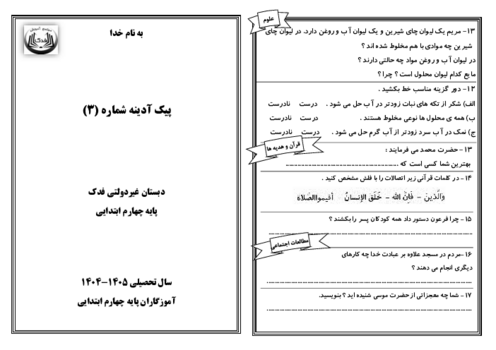 علوم
۱۳- مریم یک لیوان چای شیرین و یک لیوان آب و روغن دارد. در لیوان چای
شیرین چه موادی با هم مخلوط شده اند ؟
در لیوان آب و روغن مواد چه حالتی دارند ؟
مایع کدام لیوان محلول است ؟ چرا ؟
۱۲- دور گزینه مناسب خط بکشید .
الف) شکر از تکه های نبات زودتر در آب حل می شود . درست نادرست
ب) همه ی محلول ها نوعی مخلوط هستند . درست نادرست
ج) نمک در آب سرد زودتر از آب گرم حل می شود . درست نادرست
قرآن و هدیه ها
۱۳- حضرت محمد می فرمایند :
بهترین شما کسی است که
۱۴- در کلمات قرآنی زیر اتصالات را با فلش مشخص کنید .
وَالَّذینَ - فَإِنَّ اللهَ - خَلَقَ الإِنسانَ أَقیمُوا الصَّلاةَ
۱۵- چرا فرعون دستور داد همه کودکان پسر را بکشند ؟
مطالعات اجتماعی
۱۶- مردم در مسجد علاوه بر عبادت خدا چه کارهای
دیگری انجام می دهند ؟
۱۷- شما چه معجزاتی از حضرت موسی شنیده اید ؟ بنویسید.
به نام خدا
فدک
پیک آدینه شماره (۳)
دبستان غیردولتی فدک
پایه چهارم ابتدایی
سال تحصیلی ۱۴۰۵-۱۴۰۴
آموزگاران پایه چهارم ابتدایی